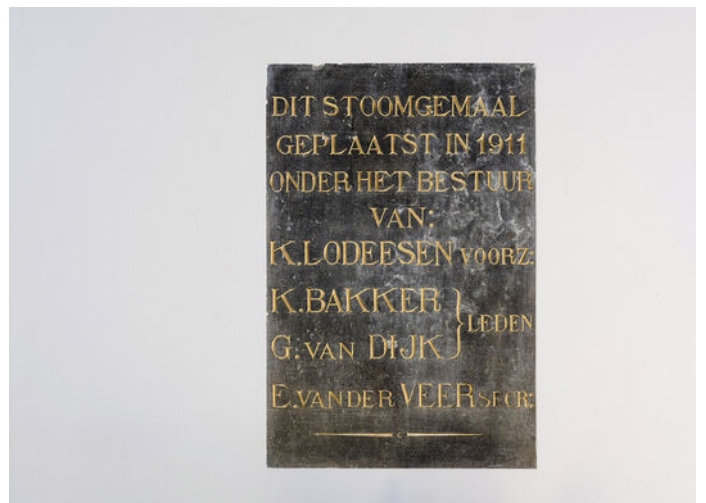 DIT STOOMGEMAAL
GEPLAATST IN 1911
ONDER HET BESTUUR
VAN:
K. LODEESEN VOORZ:
K. BAKKER
LEDEN
G. VAN DIJK
E. VAN DER VEER SECR: